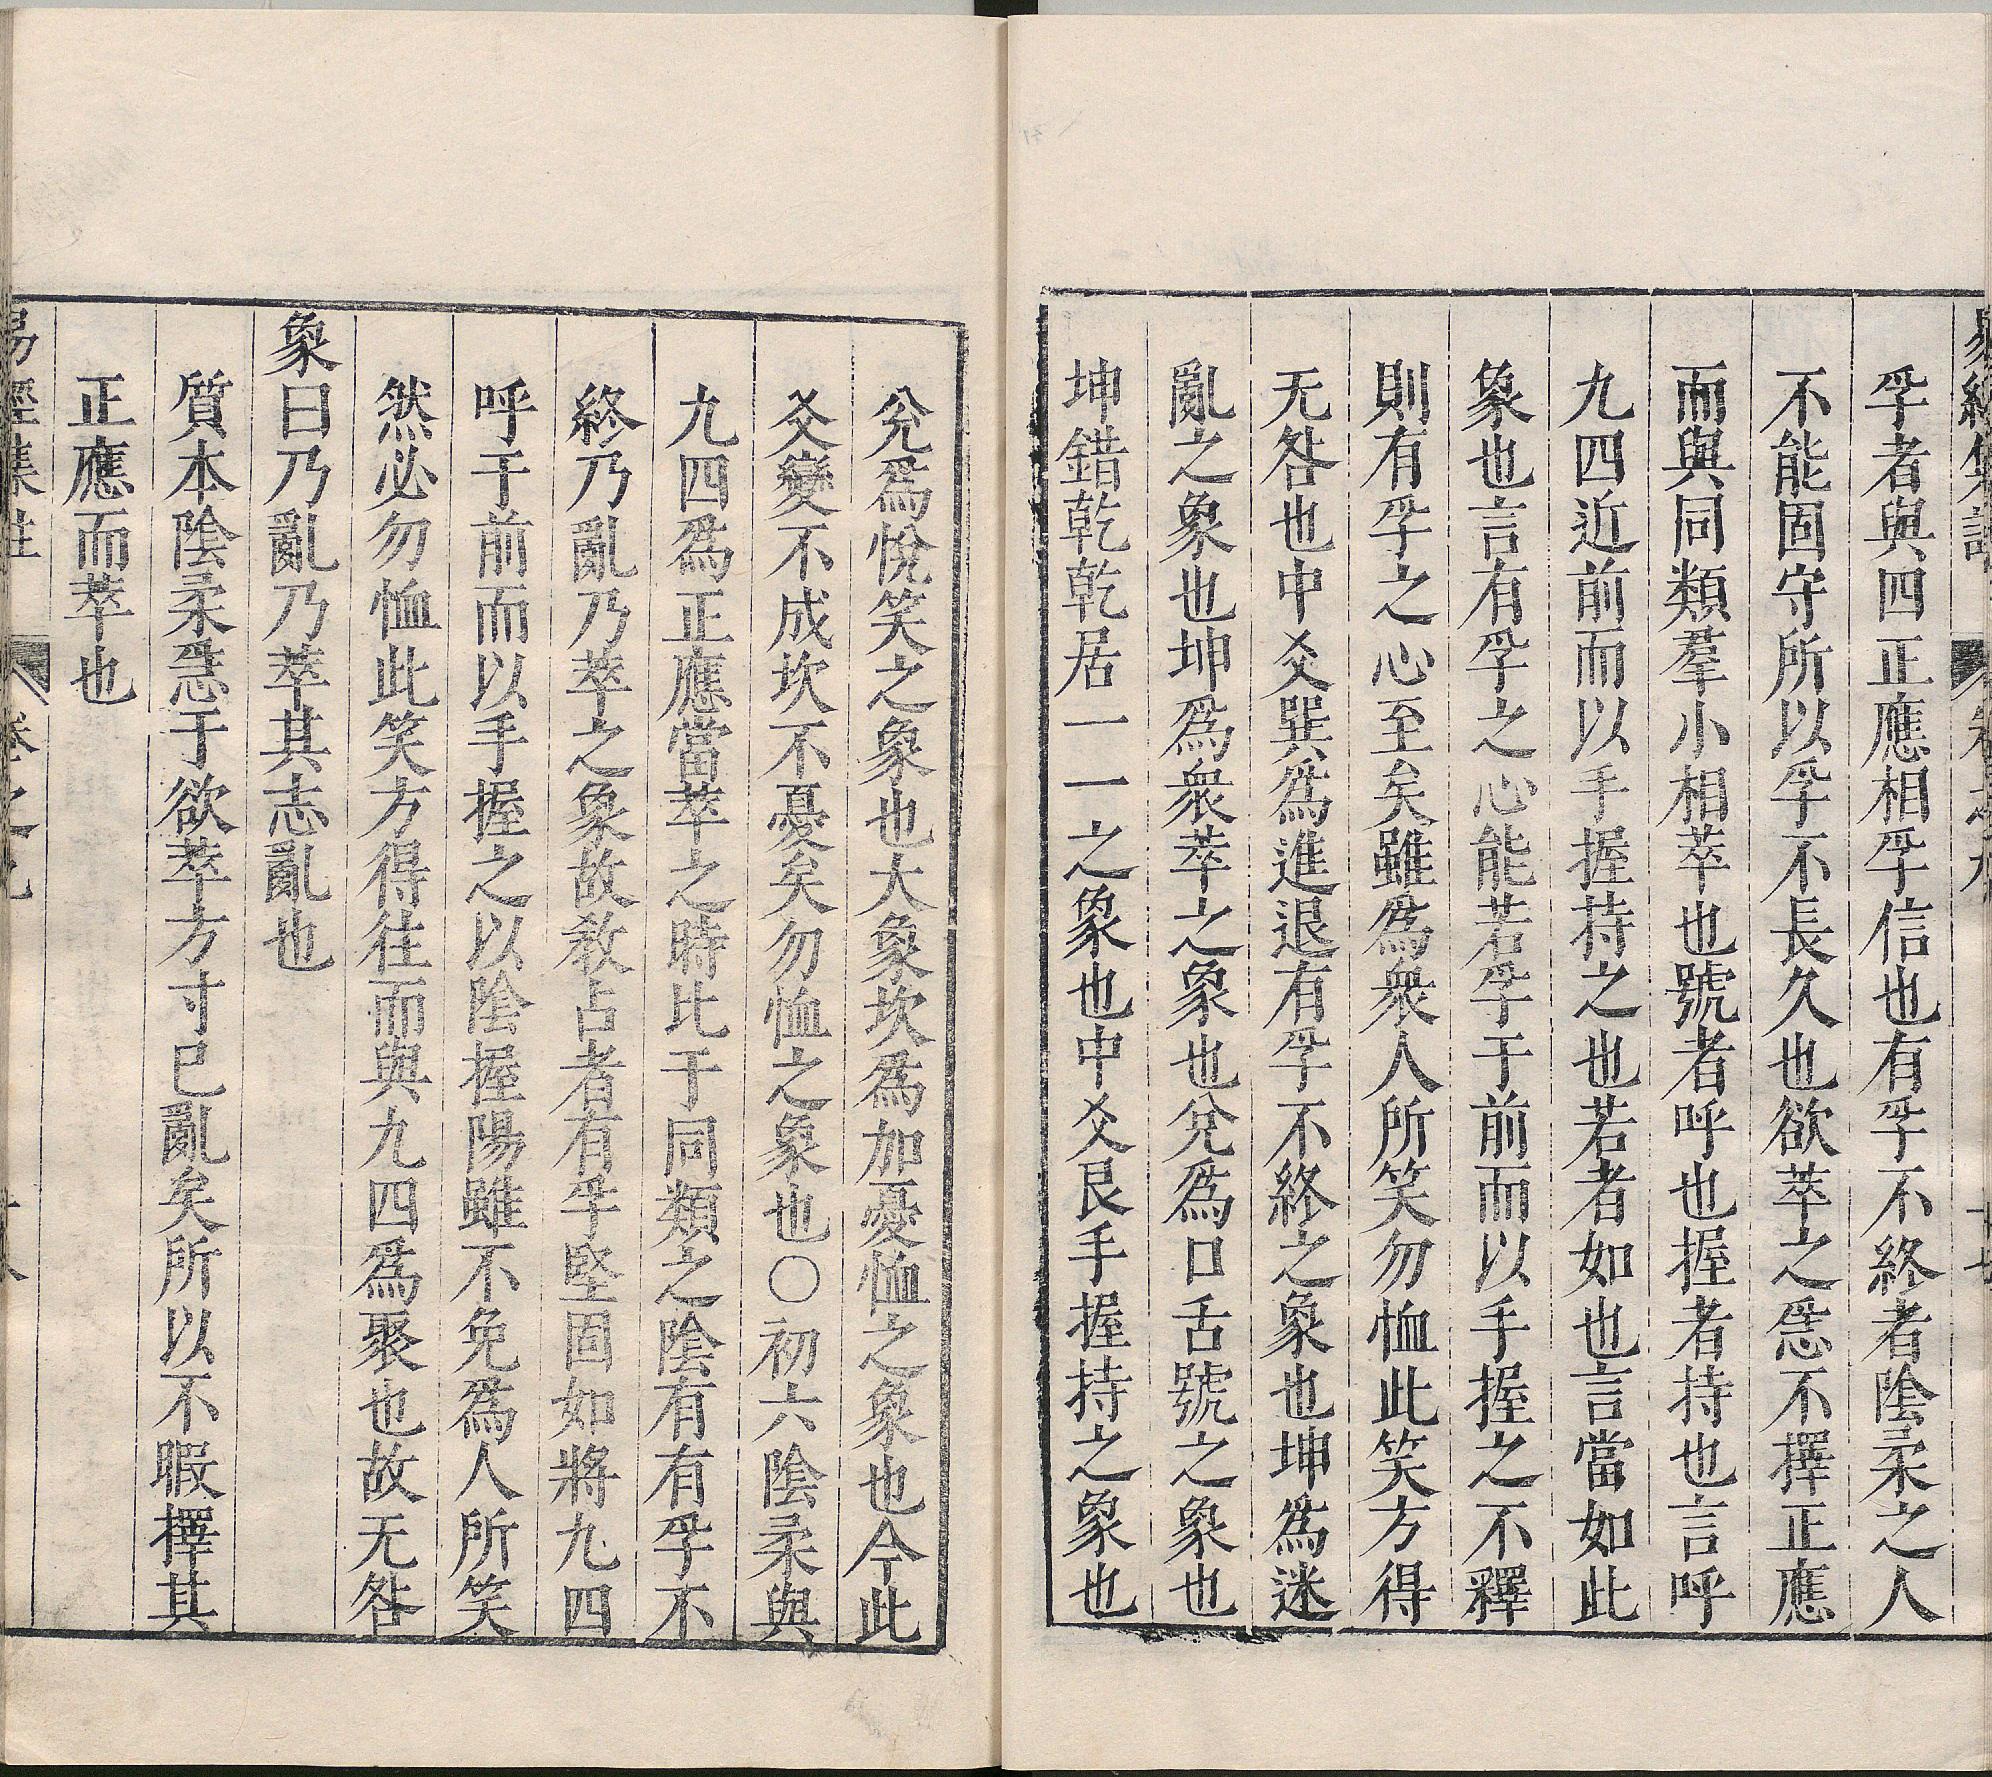 孚者與四正應相孚信也有孚不終者陰柔之人
不能固守所以孚不長久也欲萃之急不擇正應
而與同類羣小相萃也號者呼也握者持也言呼
九四近前而以手握持之也若者如也言當如此
象也言有孚之心能若孚于前而以手握之不釋
則有孚之心至矣雖爲衆人所笑勿恤此笑方得
无咎也中爻巽爲進退有孚不終之象也坤爲迷
亂之象也坤爲衆萃之象也兌爲口舌號之象也
坤錯乾乾居一一之象也中爻艮手握持之象也
兌爲悅笑之象也大象坎爲加憂恤之象也今此
爻變不成坎不憂矣勿恤之象也○初六陰柔與
九四爲正應當萃之時比于同類之陰有有孚不
終乃亂乃萃之象故教占者有孚堅固如將九四
呼于前而以手握之以陰握陽雖不免爲人所笑
然必勿恤此笑方得往而與九四爲聚也故无咎
象曰乃亂乃萃其志亂也
質本陰柔急于欲萃方寸已亂矣所以不暇擇其
正應而萃也
易經集註 卷之九